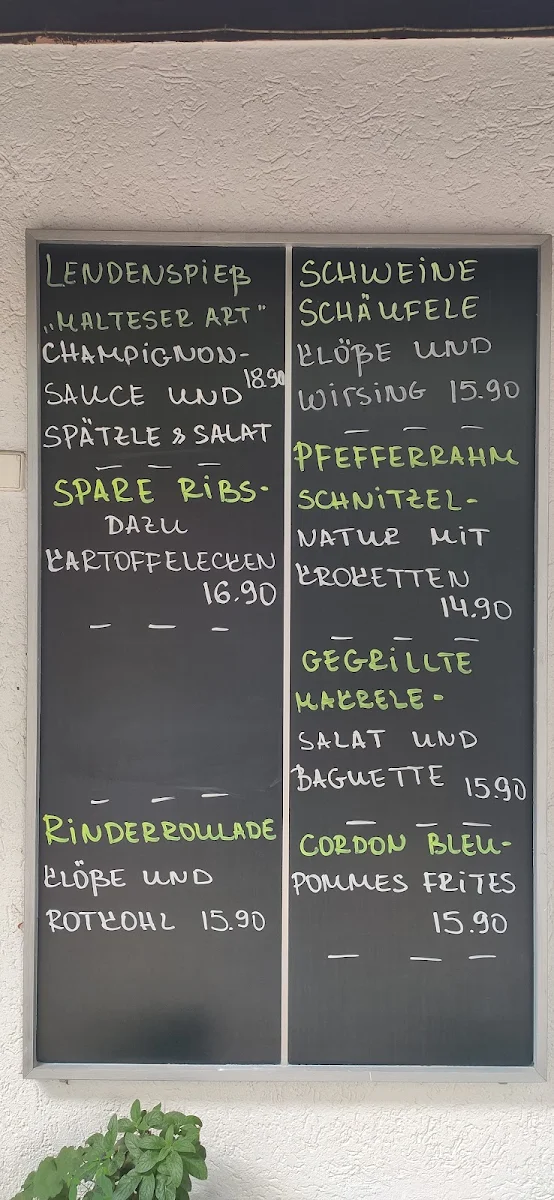 LENDENSPIEß
„MALTESER ART"
CHAMPiGNON-
SAUCE UND 18.90
SPÄTZLE & SALAT
SPARE RiBS-
DAZU
KARTOFFELECKEN
16.90
RiNDERROULADE
KLÖßE UND
ROTKOHL 15.90
SCHWEiNE
SCHÄUFELE
KLÖßE UND
WiRSING 15.90
PFEFFERRAHM
SCHNiTZEL-
NATUR MiT
KROKETTEN
14.90
GEGRiLLTE
MAKRELE-
SALAT UND
BAGUETTE 15.90
CORDON BLEU-
POMMES FRiTES
15.90